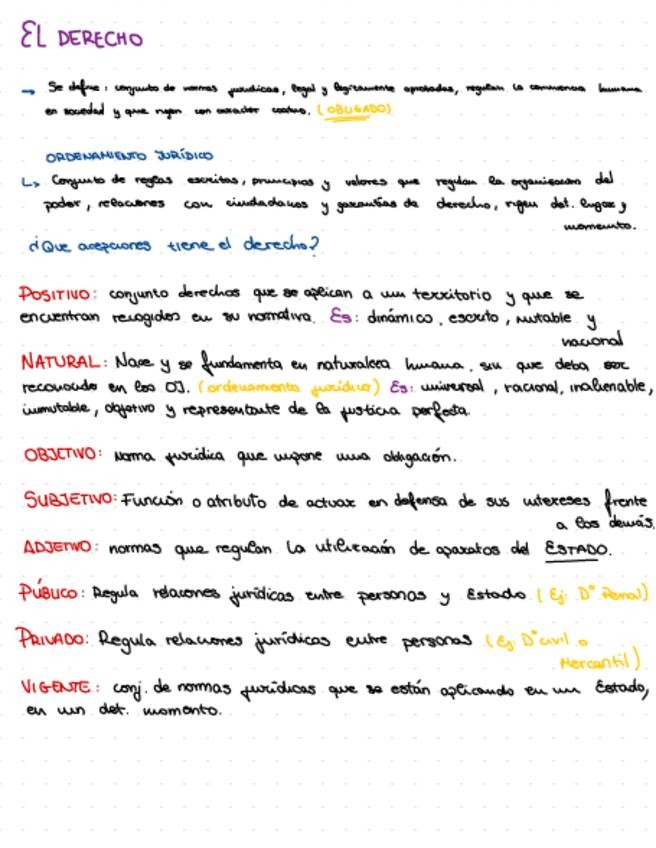 EL DERECHO
→ Se define: conjunto de normas jurídicas, legal y legítimamente aprobadas, regulan la convivencia humana
en sociedad y que rigen con carácter coativo. (OBLIGADO)
ORDENAMIENTO JURÍDICO
↳ Conjunto de reglas escritas, principios y valores que regulan la organización del
poder, relaciones con ciudadanos y garantías de derecho, rigen det. lugar y
momento.
¿Que acepciones tiene el derecho?
POSITIVO: conjunto derechos que se aplican a un territorio y que se
encuentran recogidos en su normativa. Es: dinámico, escrito, mutable y
nacional
NATURAL: Nace y se fundamenta en naturaleza humana, sin que deba ser
reconocido en los OJ. (ordenamento jurídico) Es: universal, racional, inalienable,
inmutable, objetivo y representante de la justicia perfecta.
OBJETIVO: Norma jurídica que impone una obligación.
SUBJETIVO: Función o atributo de actuar en defensa de sus intereses frente
a los demás.
ADJETIVO: normas que regulan la utilización de aparatos del ESTADO.
PÚBLICO: Regula relaciones jurídicas entre personas y Estado (Ej: Dº Penal)
PRIVADO: Regula relaciones jurídicas entre personas (Ej: Dº civil o
Mercantil)
VIGENTE: conj. de normas jurídicas que se están aplicando en un Estado,
en un det. momento.